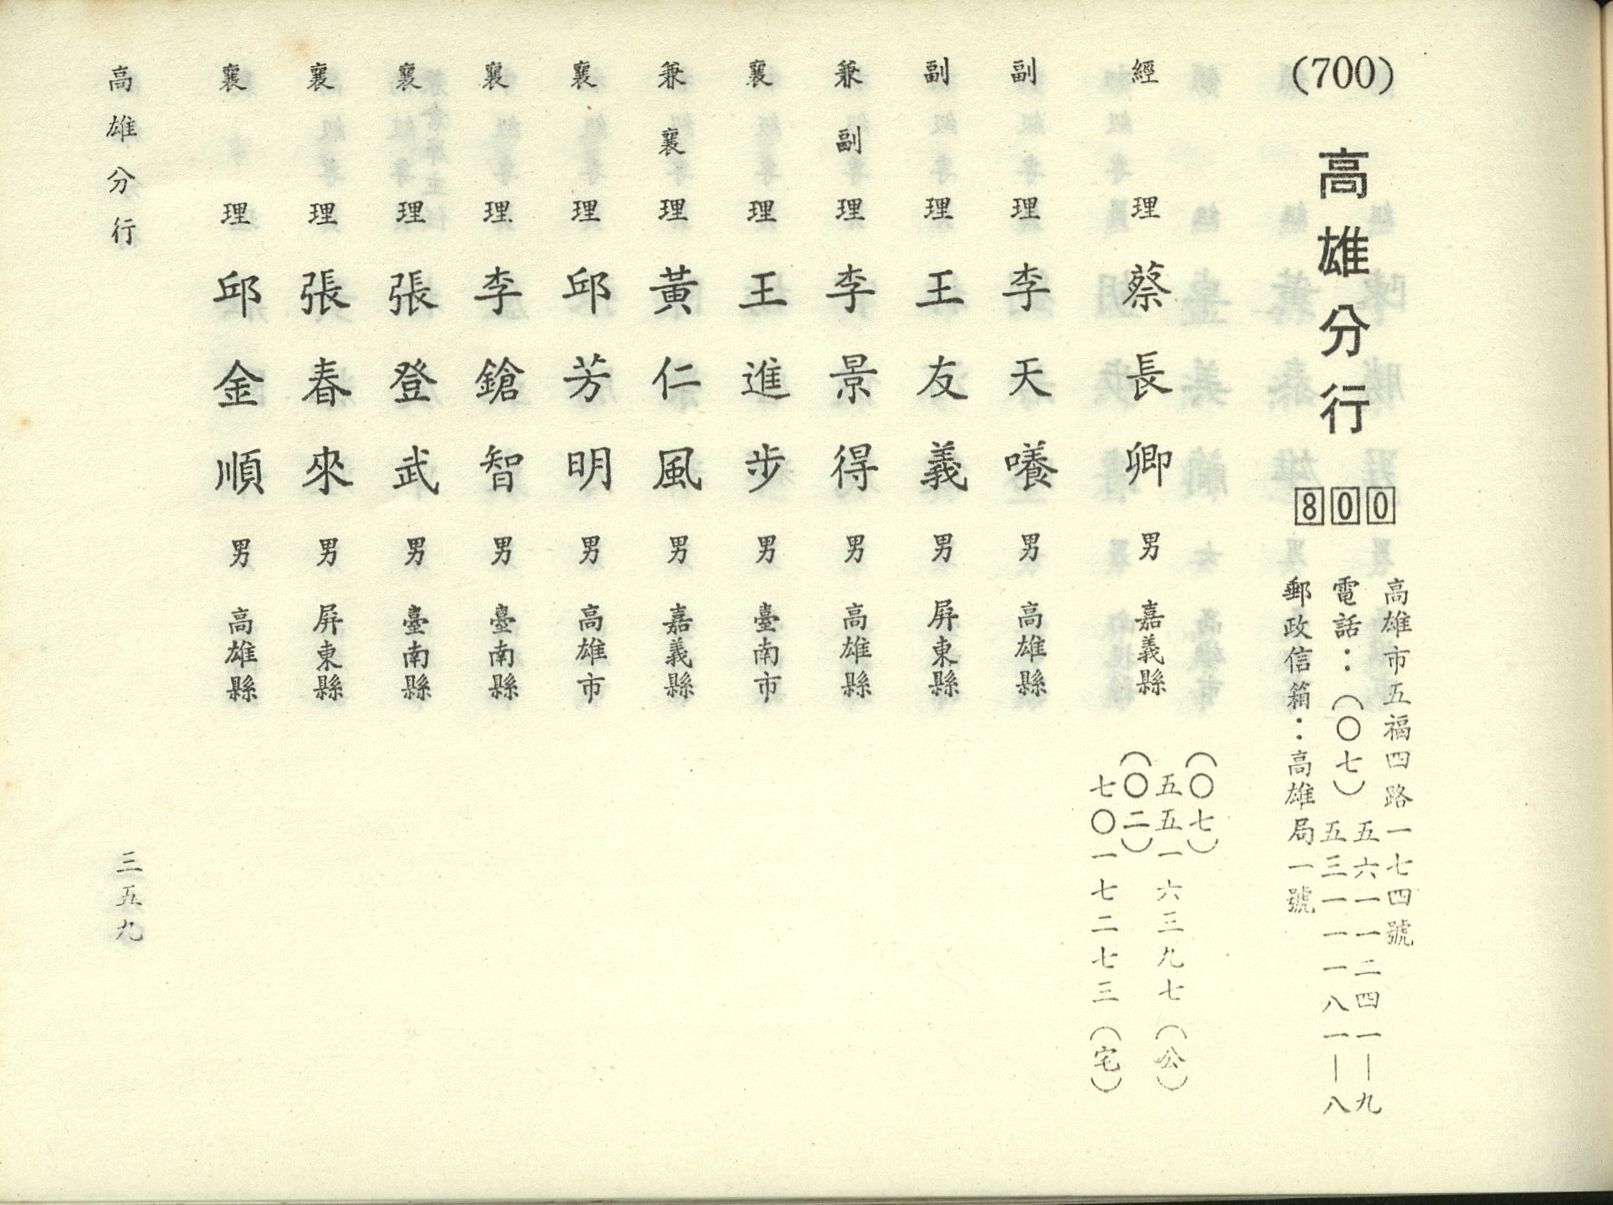 (700)
高雄分行
800
高雄市五福四路一七四號
電話：(〇七)五六一一二四一—九
五三一一一八一—八
郵政信箱：高雄局一號
經理 蔡長卿 男 嘉義縣
(〇七)
五五一六三九七(公)
(〇二)
七〇一七二七三(宅)
副理 李天嗛 男 高雄縣
副理 王友義 男 屏東縣
兼副理 李景得 男 高雄縣
襄理 王進步 男 臺南市
兼襄理 黃仁風 男 嘉義縣
襄理 邱芳明 男 高雄市
襄理 李鎗智 男 臺南縣
襄理 張登武 男 臺南縣
襄理 張春來 男 屏東縣
襄理 邱金順 男 高雄縣
高雄分行
三五九